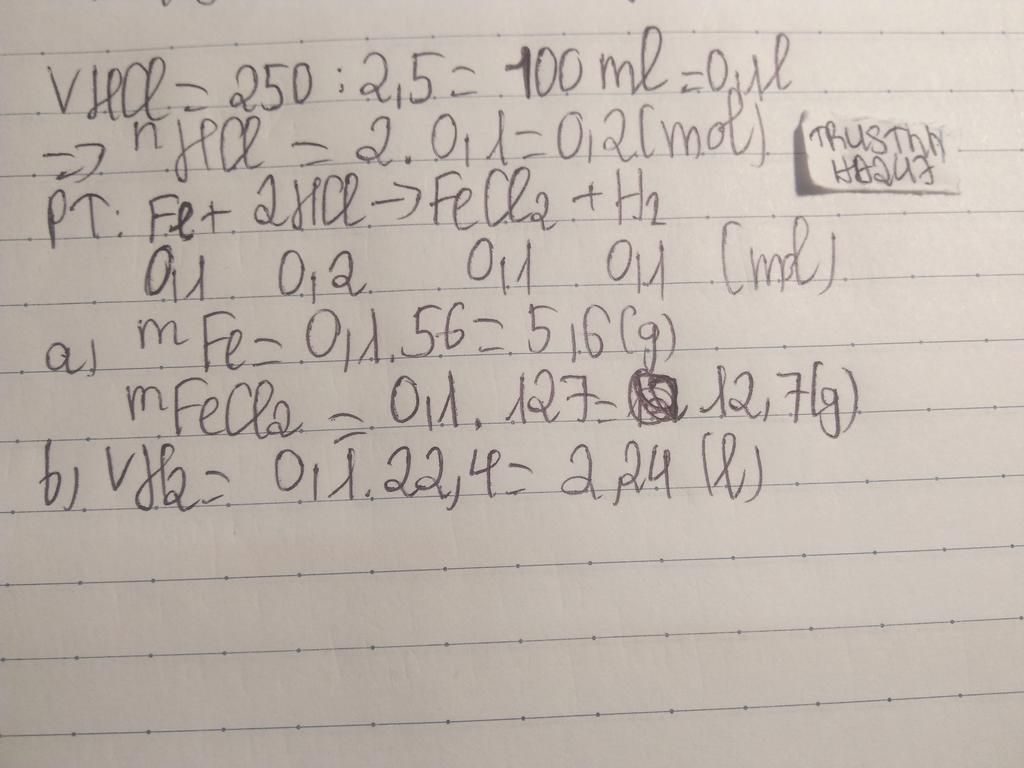 VHCl = 250 : 2,5 = 100 ml = 0,1l
=> nHCl = 2. 0,1 = 0,2 (mol)
TRUSTNN
HB247
PT: Fe + 2HCl -> FeCl2 + H2
0,1 0,2 0,1 0,1 (mol)
a) mFe = 0,1.56 = 5,6(g)
mFeCl2 = 0,1. 127 = 12,7(g)
b) VH2 = 0,1.22,4 = 2,24 (l)